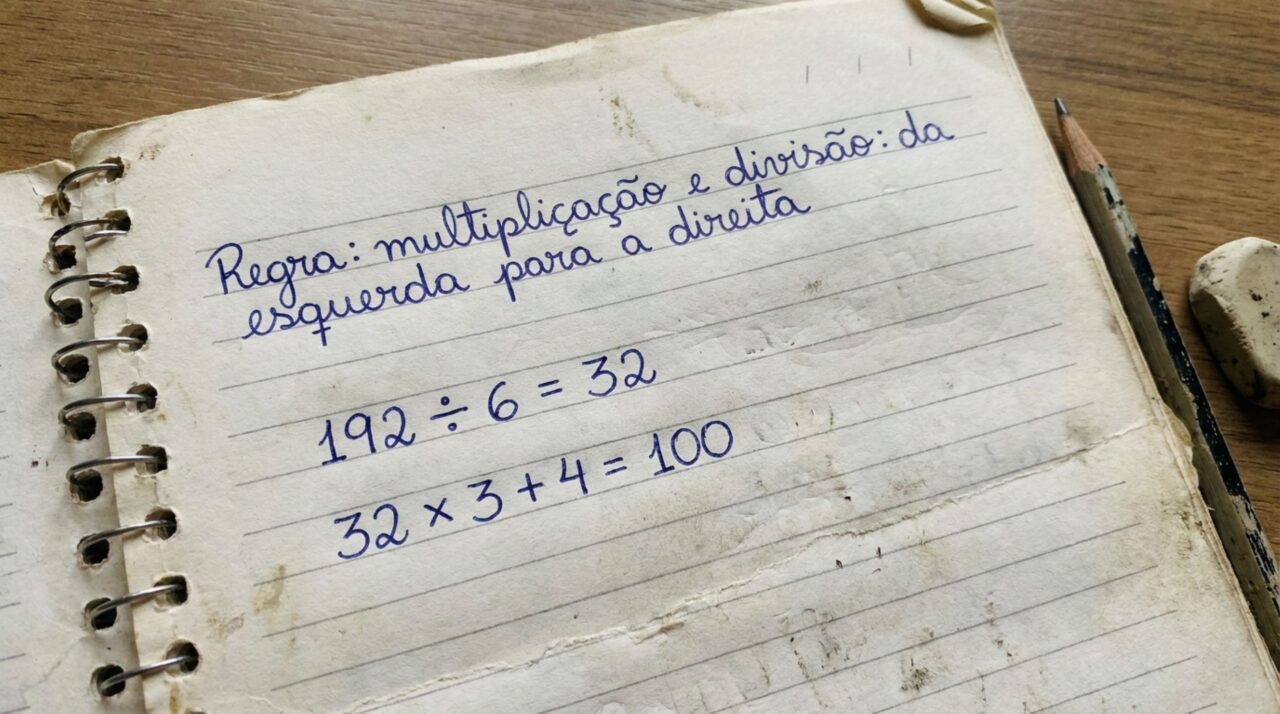 Regra: multipliçação e divisão: da
esquerda para a direita
192 ÷ 6 = 32
32 × 3 + 4 = 100